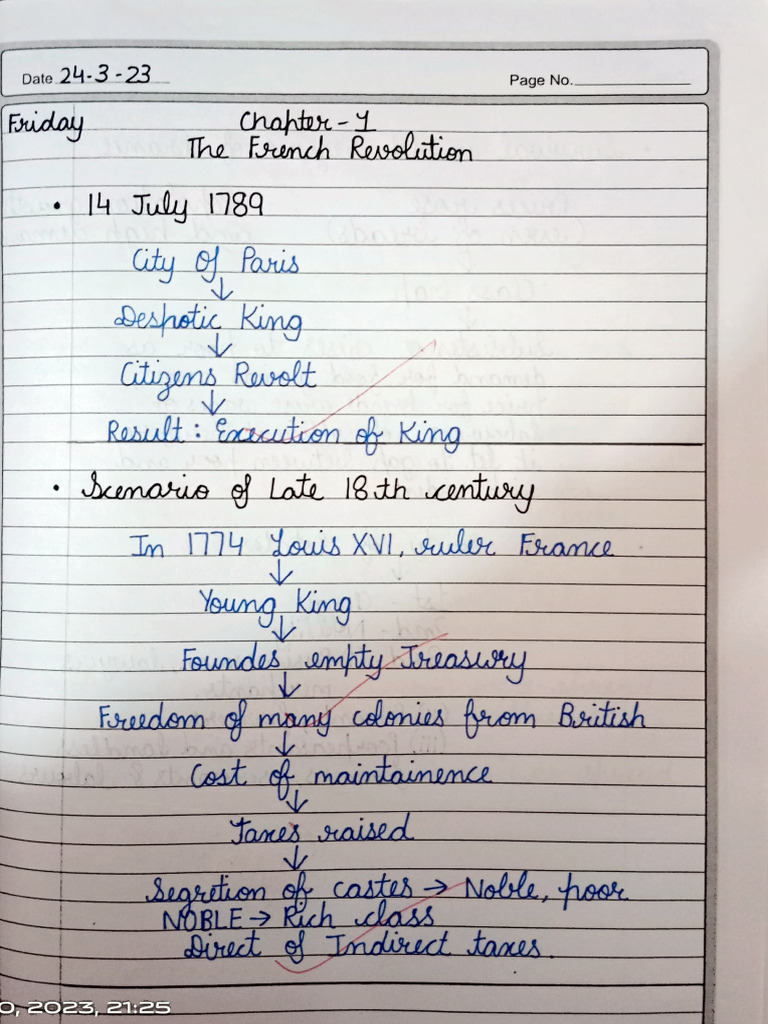 Date 24-3-23 Page No.
Friday Chapter-1
The French Revolution
• 14 July 1789
City of Paris
↓
Despotic King
↓
Citizens Revolt
↓
Result : Execution of King
• Scenario of Late 18th century
In 1774 Louis XVI, ruler France
↓
Young King
↓
Foundes empty Treasury
↓
Freedom of many colonies from British
↓
Cost of maintainence
↓
Taxes raised
↓
Segretion of castes → Noble, poor
NOBLE → Rich class
Direct of Indirect taxes.
0, 2023, 21:25